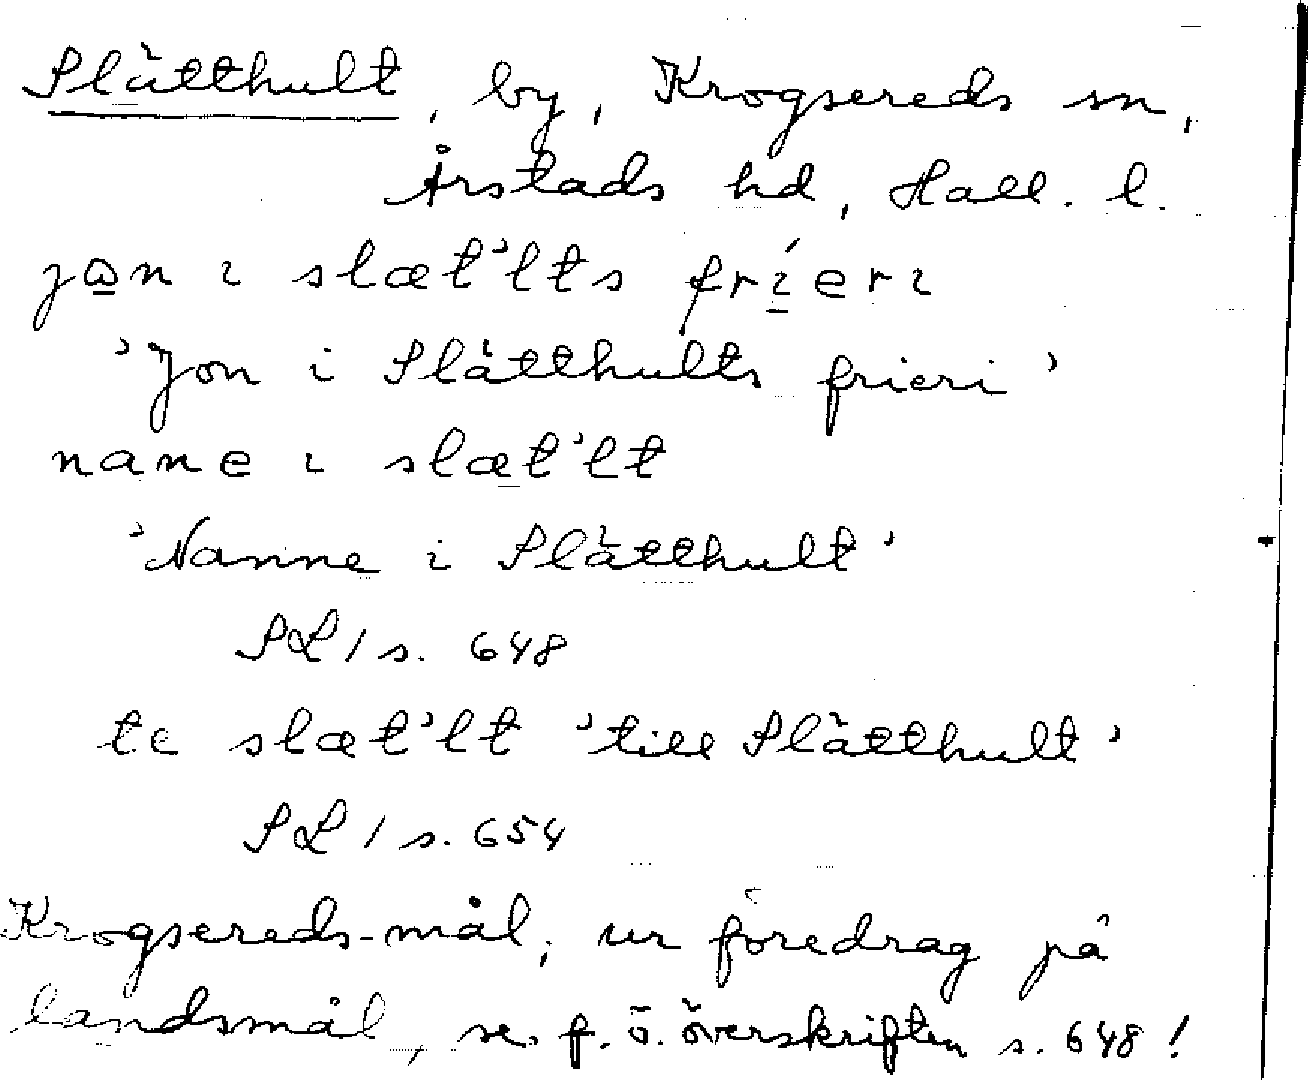 Slätthult, by, Krogsereds sn,
Årstads hd, Hall. l.
jɷn ɩ slæt'lts frı́erɩ
'Jon i Slätthults frieri'
nane ɩ slæt'lt
'Nanne i Slätthult'
SL 1 s. 648
te slæt'lt 'till Slätthult'
SL 1 s. 654
Krogsereds-mål, ur föredrag på
landsmål, se f. ö. överskriften s. 648!